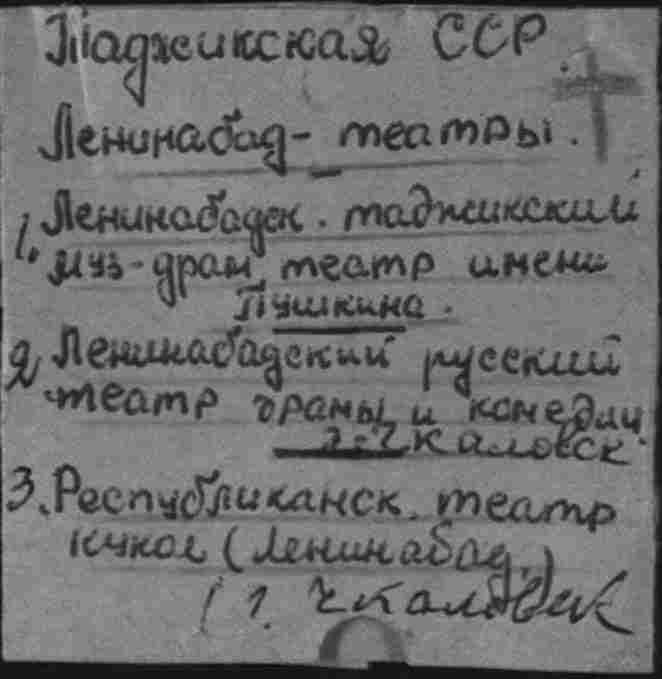 Таджикская ССР.
Ленинабад - театры.
1. Ленинабадск. таджикский
муз-драм театр имени
Пушкина.
2 Ленинабадский русский
театр драмы и комедии
г. Чкаловск
3. Республиканск. театр
кукол (Ленинабад.)
( г. Чкаловск